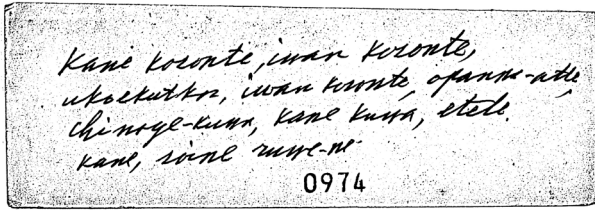 Kane kosonte, iwan kosonte,
ukoekutkor, iwan kosonte, opannu-atte,
chinoye-kuwa, kane kuwa, etete.
kane, soine ruwe-ne
0974